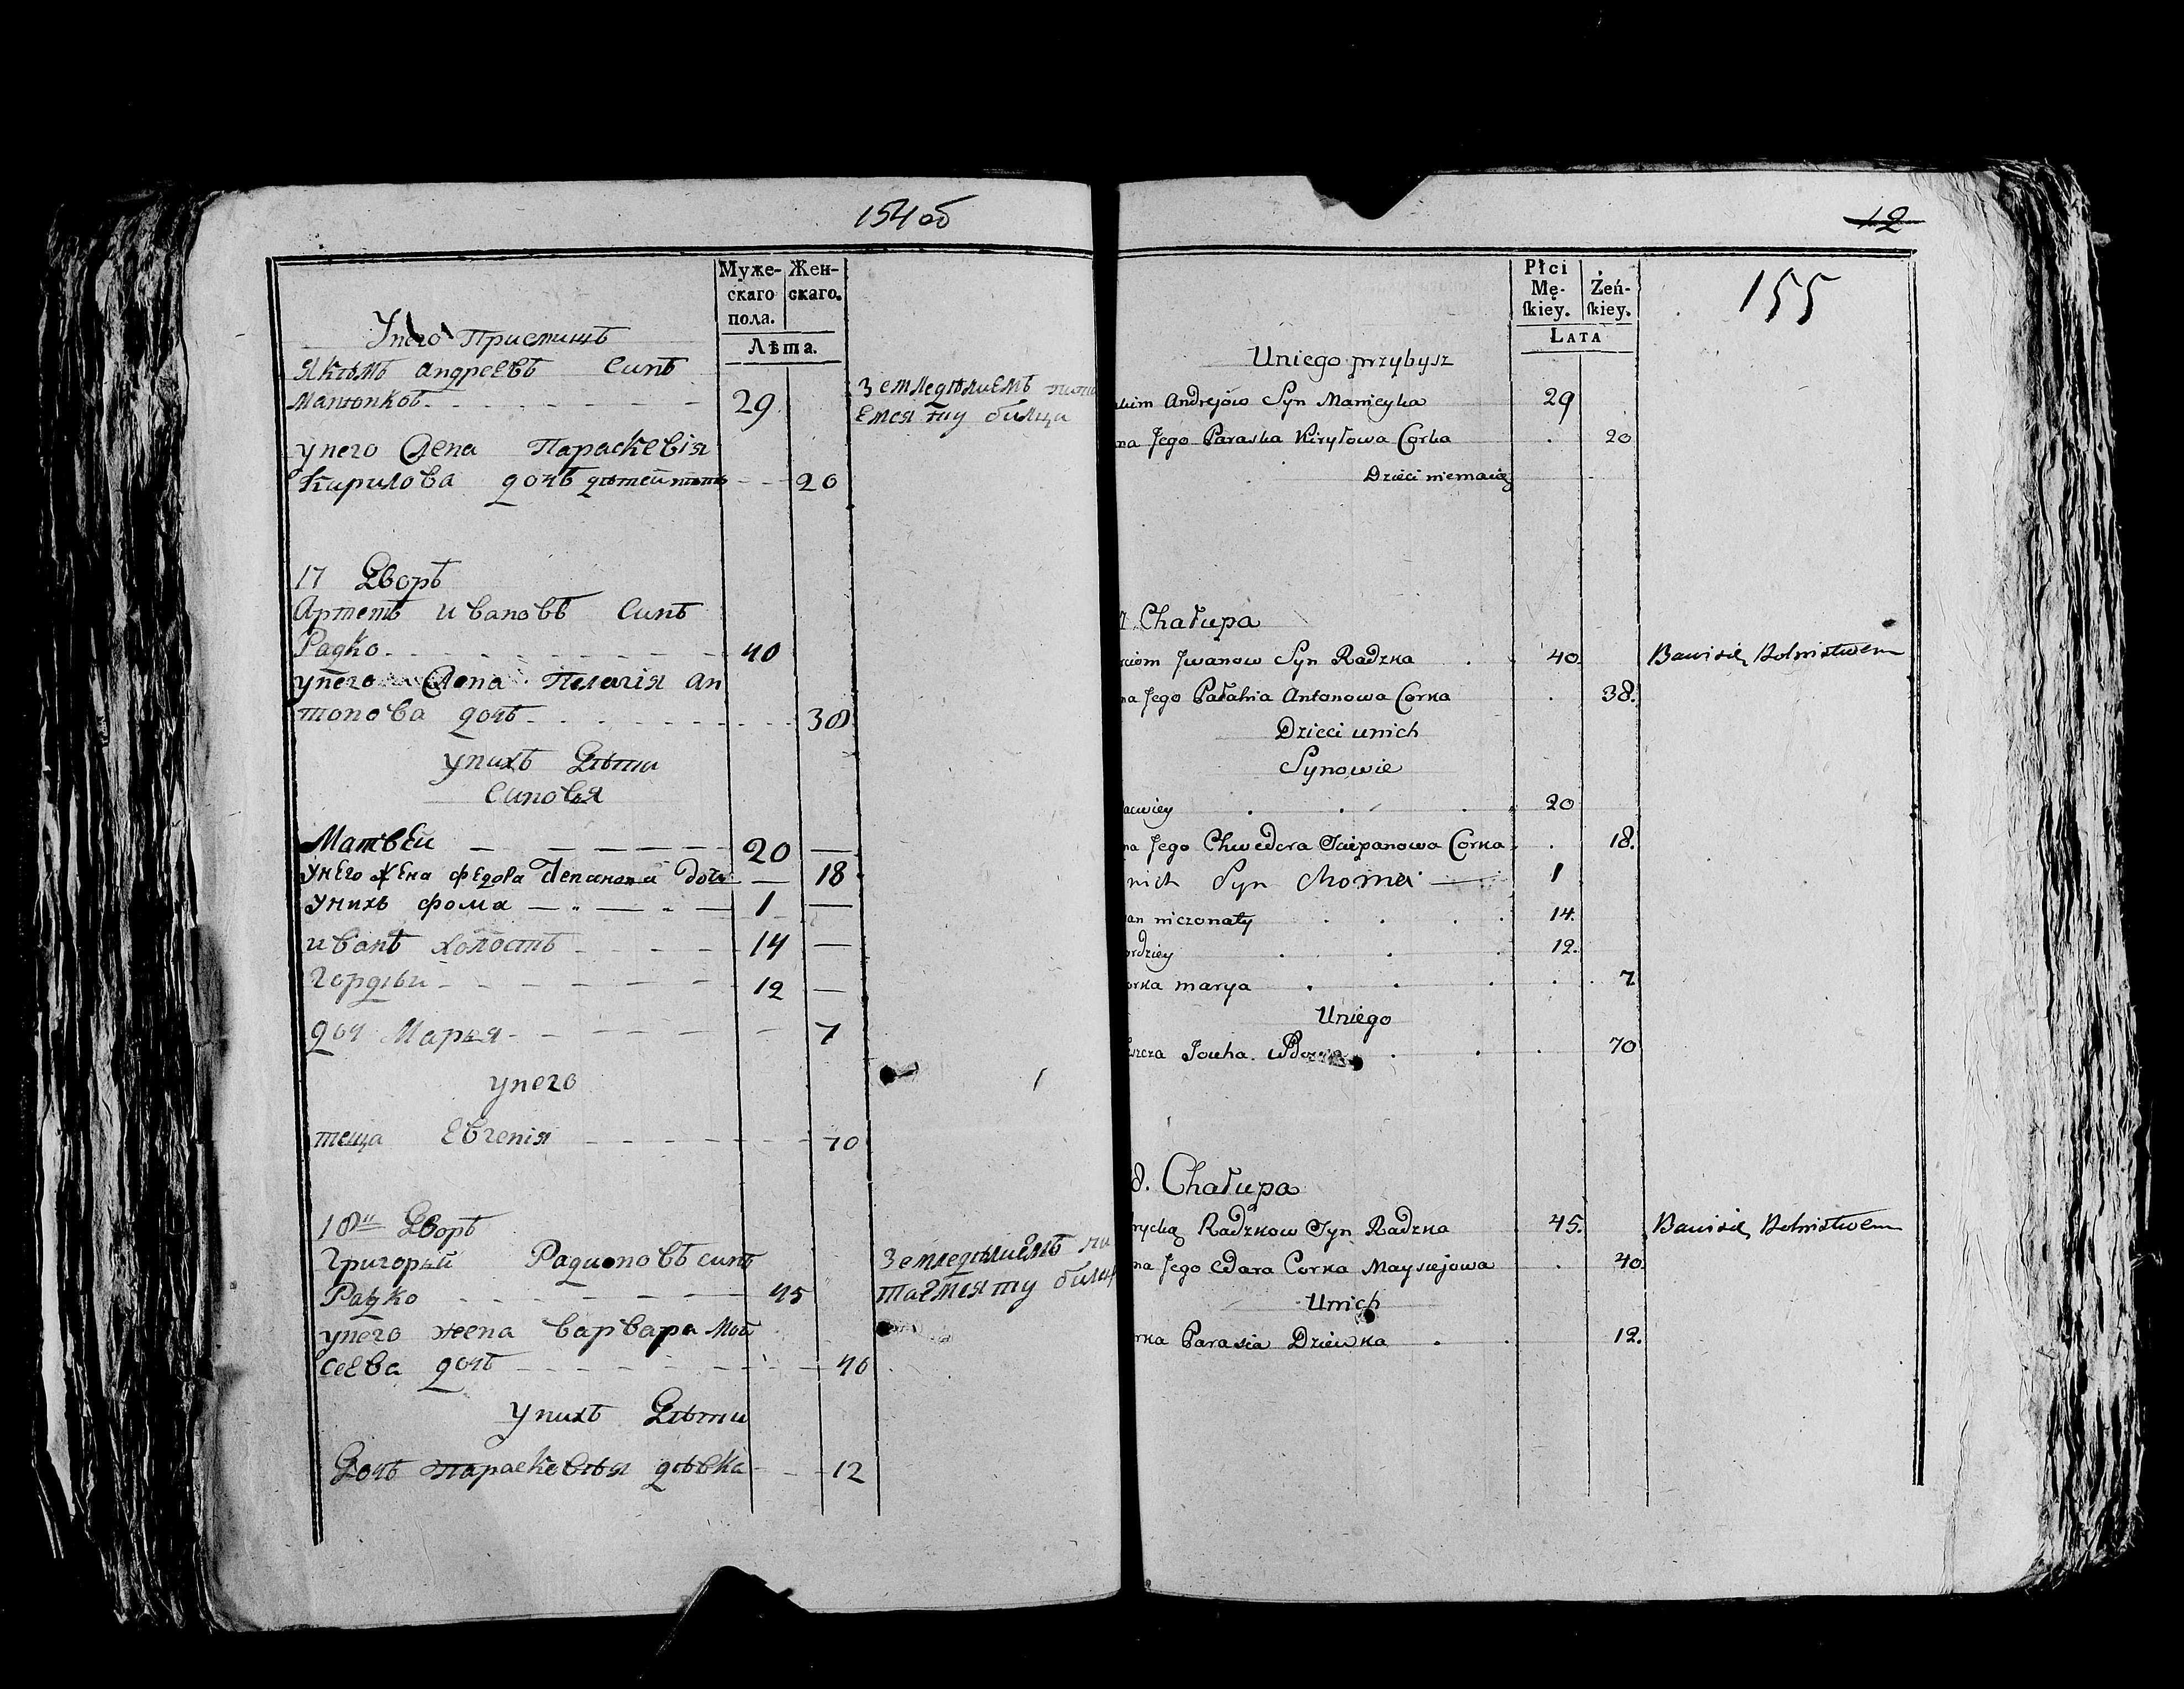 154 об
Муже-
скаго
пола.
Жен-
скаго.
Лѣта.
Унего Пристищъ
Якимъ Андреевъ Синъ
29
Земледѣлиемъ
унего Жена Параскевія
Кирилова дочъ дѣтей 20
17 Дворъ
Артемъ Ивановъ Синъ
Радко 40
унего Жена Пелагія Ан
тонова дочъ 38
унихъ Дѣти
Синовья
Матвей 20
унего жена Федора дочь 18
унихъ Фома 1
Иванъ холостъ 14
Гордѣй 12
доч Марья 7
унего
теща Евгенія 70
18й Дворъ
Григорий Радионовъ синъ
Земледѣлиемъ пи
Радко 45
таемся
унего жена Варвара Мой
сеева дочъ 40
унихъ Дѣти
Дочъ Параскевья дѣвка 12
12
155
Płci
Mę-
skiey.
Żeń-
skiey.
Lata
Uniego przybysz
kim Andrejów Syn Manieyka 29
na Jego Paraska Kiryłowa Corka 20
Dzieci niemaią
Chałupa
ciom Jwanow Syn Radzka 40 Bawi się Rolnistwem
na Jego Pałahia Antonowa Corka 38.
Dzieci unich
Synowie
acwiey 20
na Jego Chwedora Sciepanowa Corka 18.
nich Syn Choma 1
an niezonaty 14.
ordziey 12.
orka marya 7
Uniego
szcza Jouha wdowa 70
8. Chałupa
rycka Radzkow Syn Radzka 45. Bawi się Rolnistwem
na Jego Corka Maysejowa 40
Unich
rka Parasia Dziewka 12.